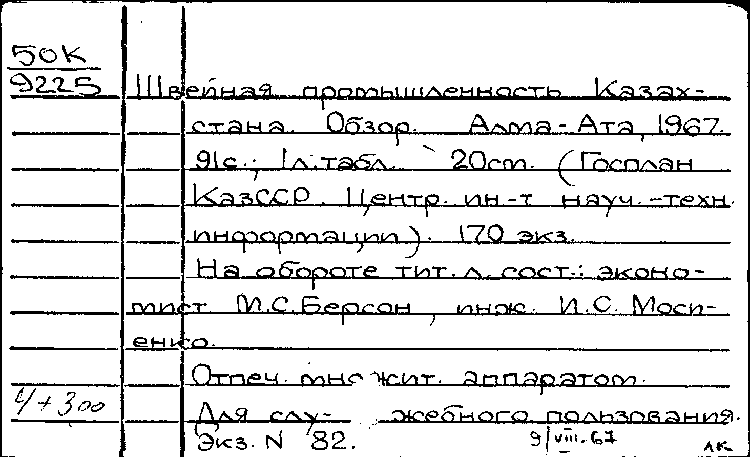 50К
9225 Швейная промышленность Казах-
стана. Обзор. Алма-Ата, 1967.
91с.; 1л.табл. 20см. (Госплан
КазССР. Центр. ин-т науч.-техн.
информации). 170 экз.
На обороте тит.л. сост.: эконо-
мист М.С.Берсон, инж. И.С. Моси-
енко.
Отпеч. множит. аппаратом.
4+300 Для слу- жебного пользования.
Экз. N 82. 9/VIII.67 ЛК